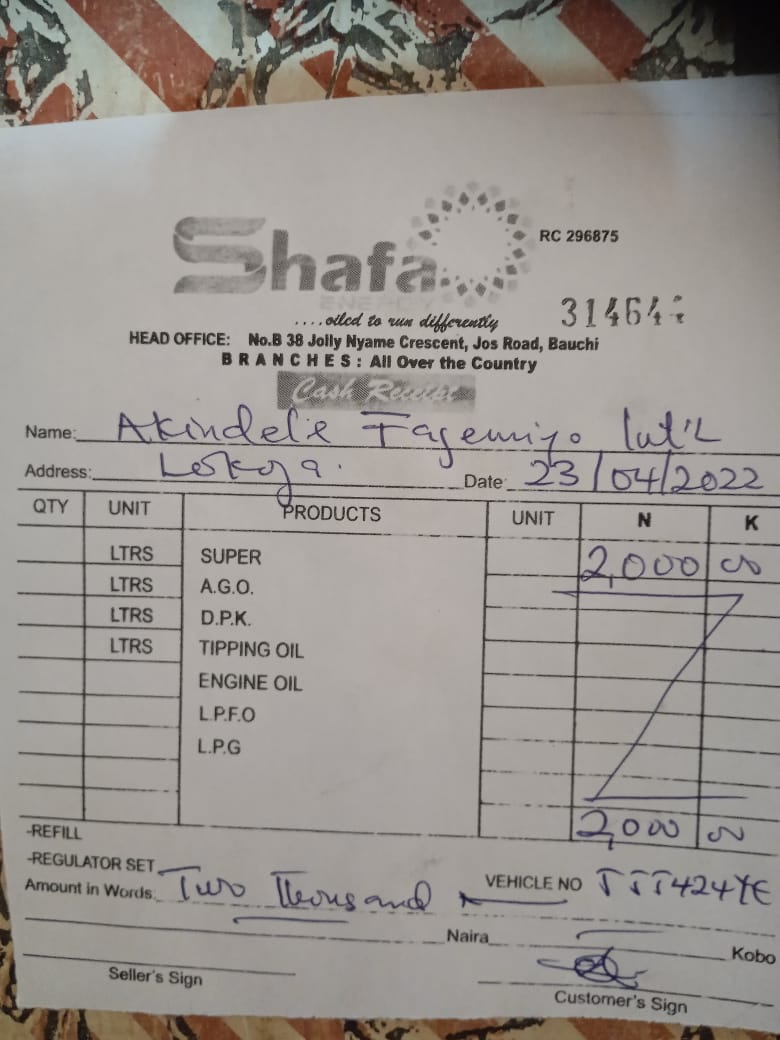 Shafa
RC 296875
ENERGY
....oiled to run differently
31464
HEAD OFFICE: No.B 38 Jolly Nyame Crescent, Jos Road, Bauchi
BRANCHES: All Over the Country
Cash Receipt
Name: Akindele Fagemiyo Int'L
Address: Lokoja. Date: 23/04/2022
QTY UNIT PRODUCTS UNIT N K
LTRS SUPER 2,000 00
LTRS A.G.O.
LTRS D.P.K.
LTRS TIPPING OIL
ENGINE OIL
L.P.F.O
L.P.G
2,000 00
-REFILL
-REGULATOR SET
Amount in Words: Two Thousand VEHICLE NO TTT424YE
Naira Kobo
Seller's Sign Customer's Sign